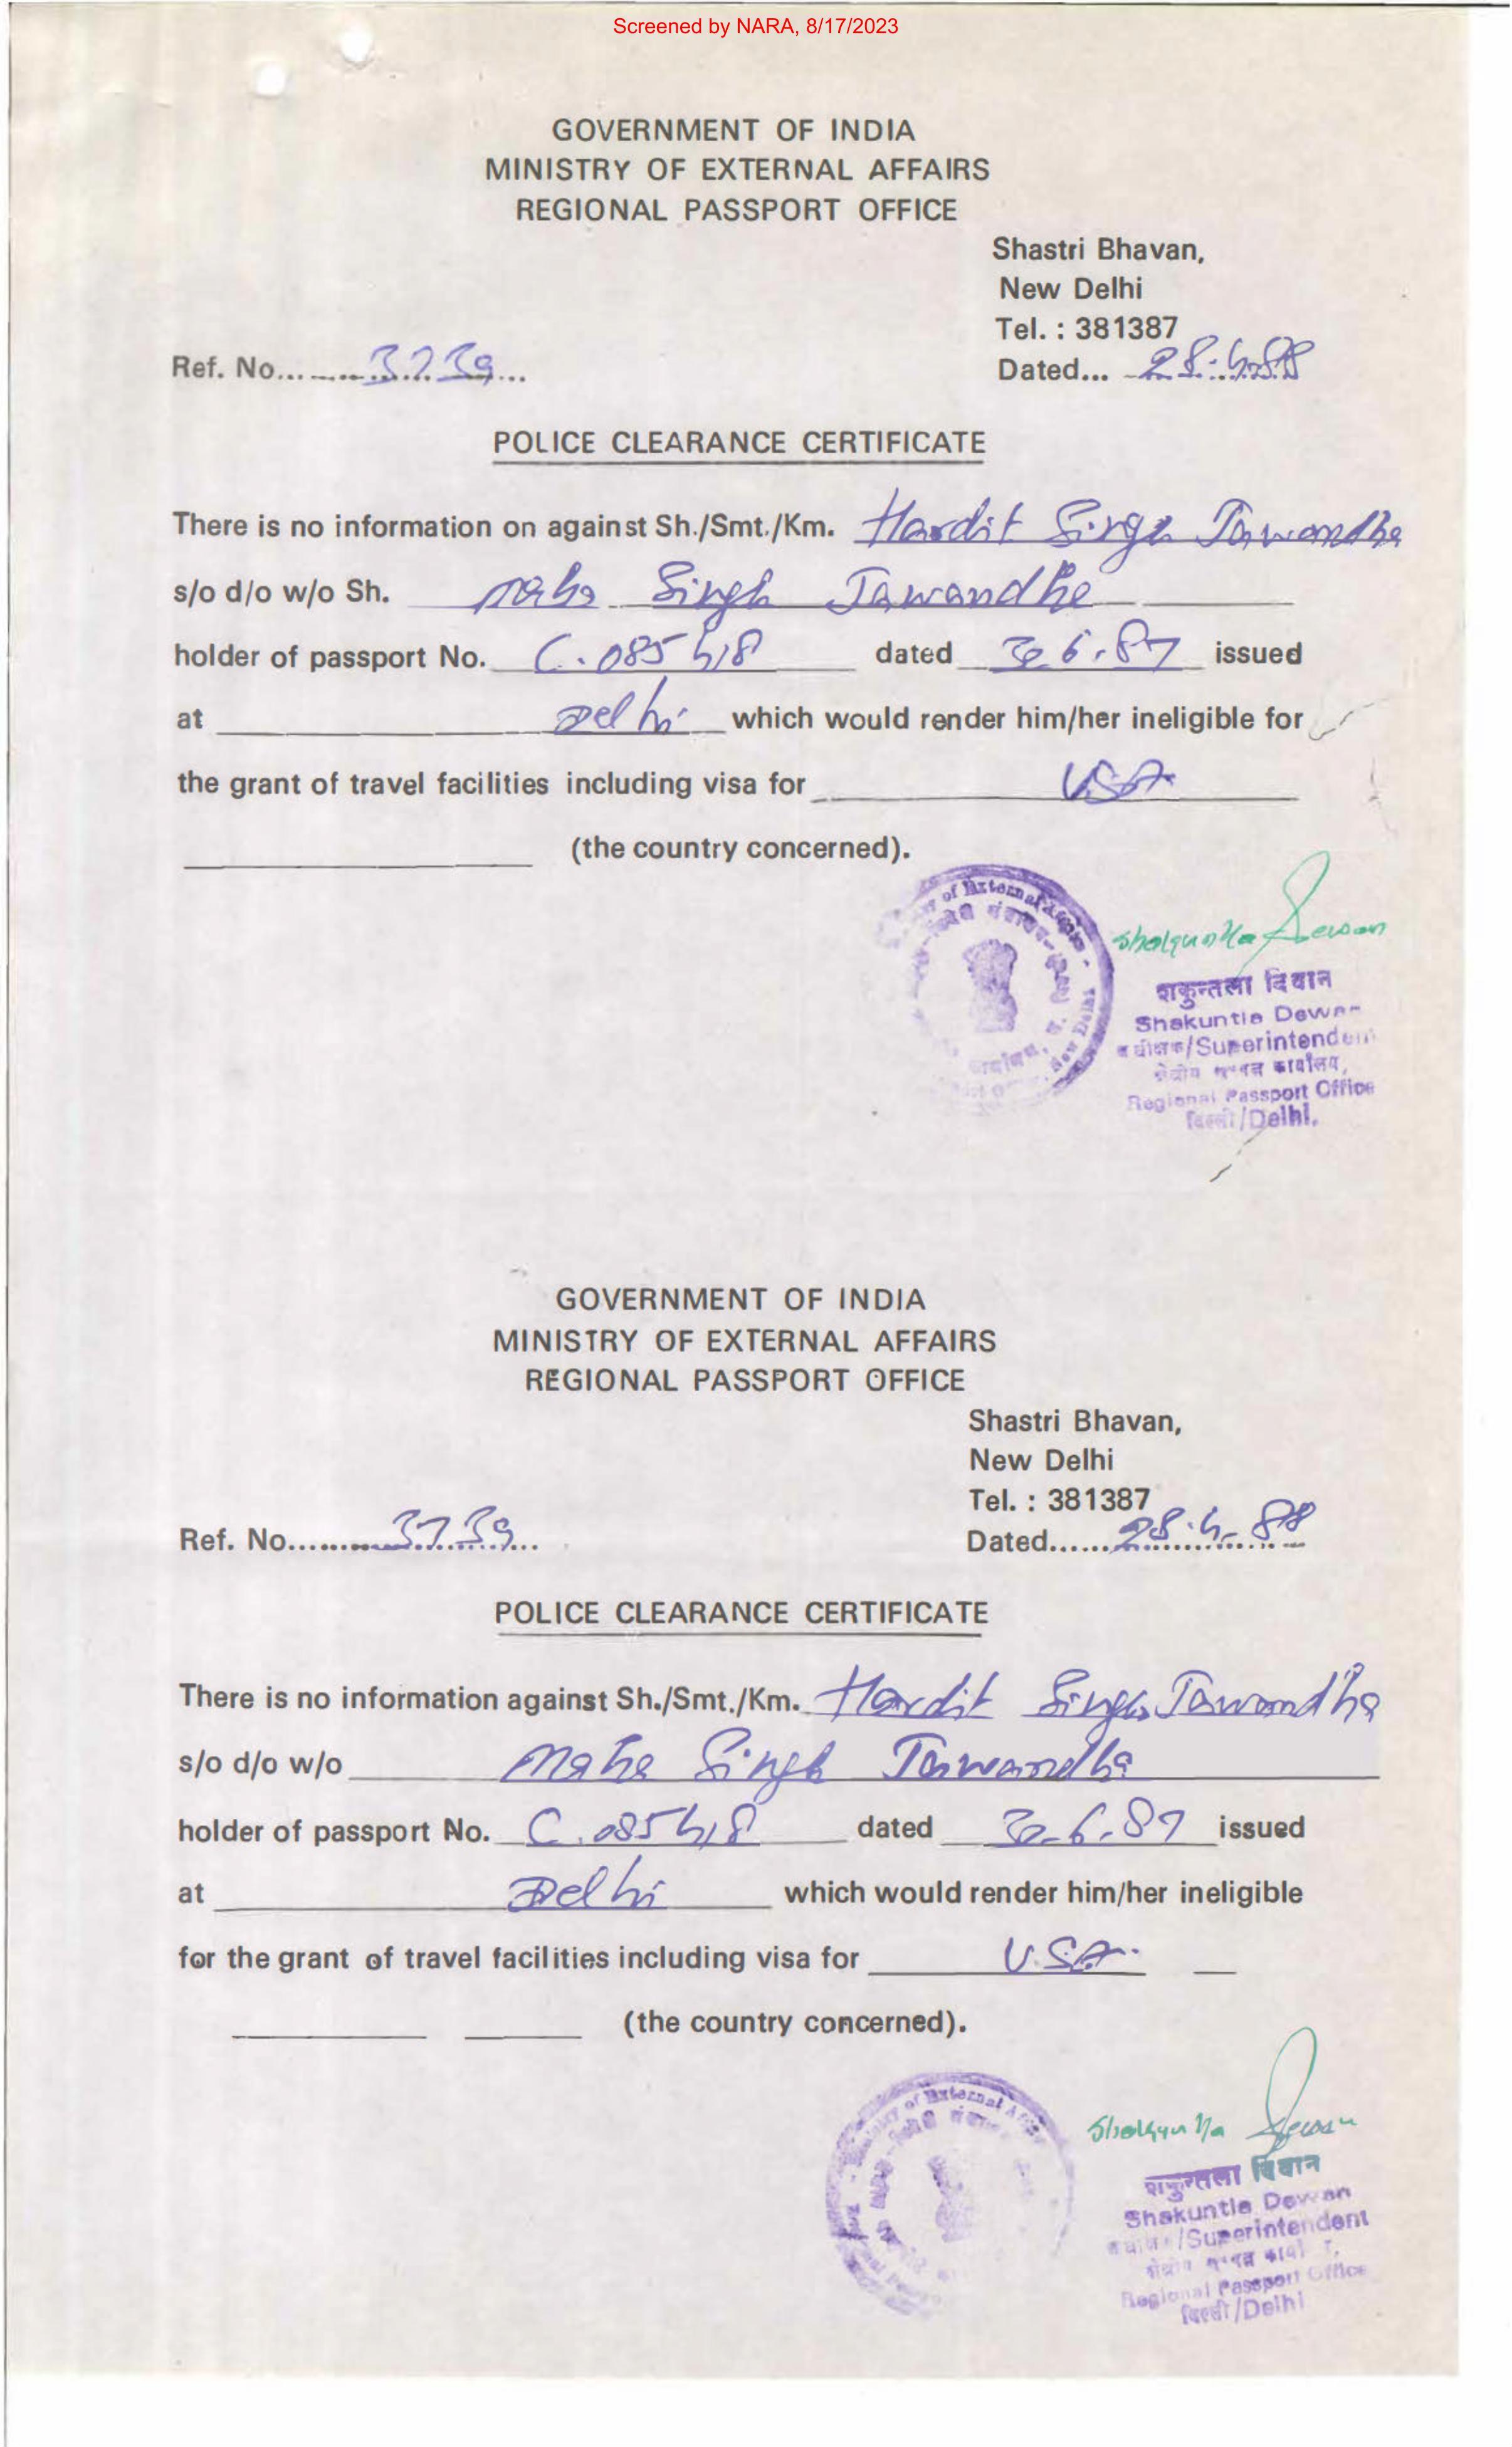 Screened by NARA, 8/17/2023
GOVERNMENT OF INDIA
MINISTRY OF EXTERNAL AFFAIRS
REGIONAL PASSPORT OFFICE
Shastri Bhavan,
New Delhi
Tel. : 381387
Ref. No. 3739
Dated... 28.4.88
POLICE CLEARANCE CERTIFICATE
There is no information on against Sh./Smt./Km. Hardit Singh Jawandha
s/o d/o w/o Sh. Maha Singh Jawandha
holder of passport No. C.085418 dated 30.6.87 issued
at Delhi which would render him/her ineligible for
the grant of travel facilities including visa for USA
(the country concerned).
of External Affairs
New Delhi
Shakuntla Dewan
शकुन्तला दिवान
Shakuntla Dewan
/Superintendent
Regional Passport Office
दिल्ली/Delhi.
GOVERNMENT OF INDIA
MINISTRY OF EXTERNAL AFFAIRS
REGIONAL PASSPORT OFFICE
Shastri Bhavan,
New Delhi
Tel. : 381387
Ref. No. 3739
Dated...... 28.4.88
POLICE CLEARANCE CERTIFICATE
There is no information against Sh./Smt./Km. Hardit Singh Jawandha
s/o d/o w/o Maha Singh Jawandha
holder of passport No. C.085418 dated 30.6.87 issued
at Delhi which would render him/her ineligible
for the grant of travel facilities including visa for U.S.A.
(the country concerned).
of External
Shakuntla Dewan
शकुन्तला दिवान
Shakuntla Dewan
/Superintendent
Regional Passport Office
दिल्ली/Delhi